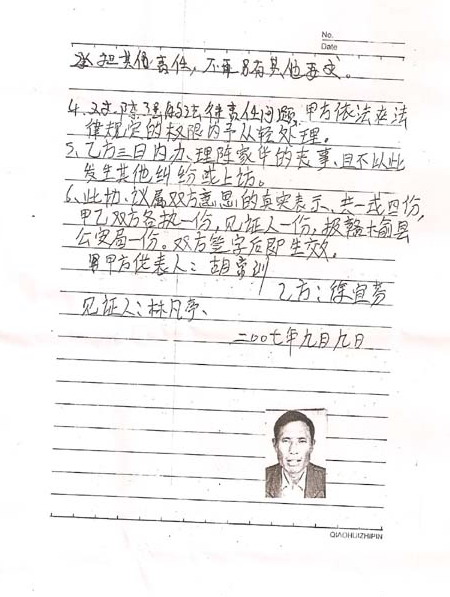 No.
Date
承担其他责任，不再另有其他要求。
4、对陈强的法律责任问题，甲方依法在法
律规定的权限内予从轻处理。
5、乙方三日内办理陈家华的丧事、且不以此
发生其他纠纷或上访。
6、此协议属双方意思的真实表示、共一式四份，
甲乙双方各执一份，见证人一份，报赣榆县
公安局一份。双方签字后即生效。
甲方代表人：胡
乙方：徐宜芳
见证人：林凡亭、
二〇〇七年九月九日
QIAOHUIZHIPIN